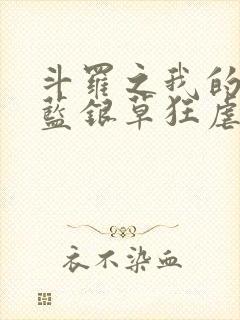 斗羅之我的
藍銀草狂虐
衣不染血